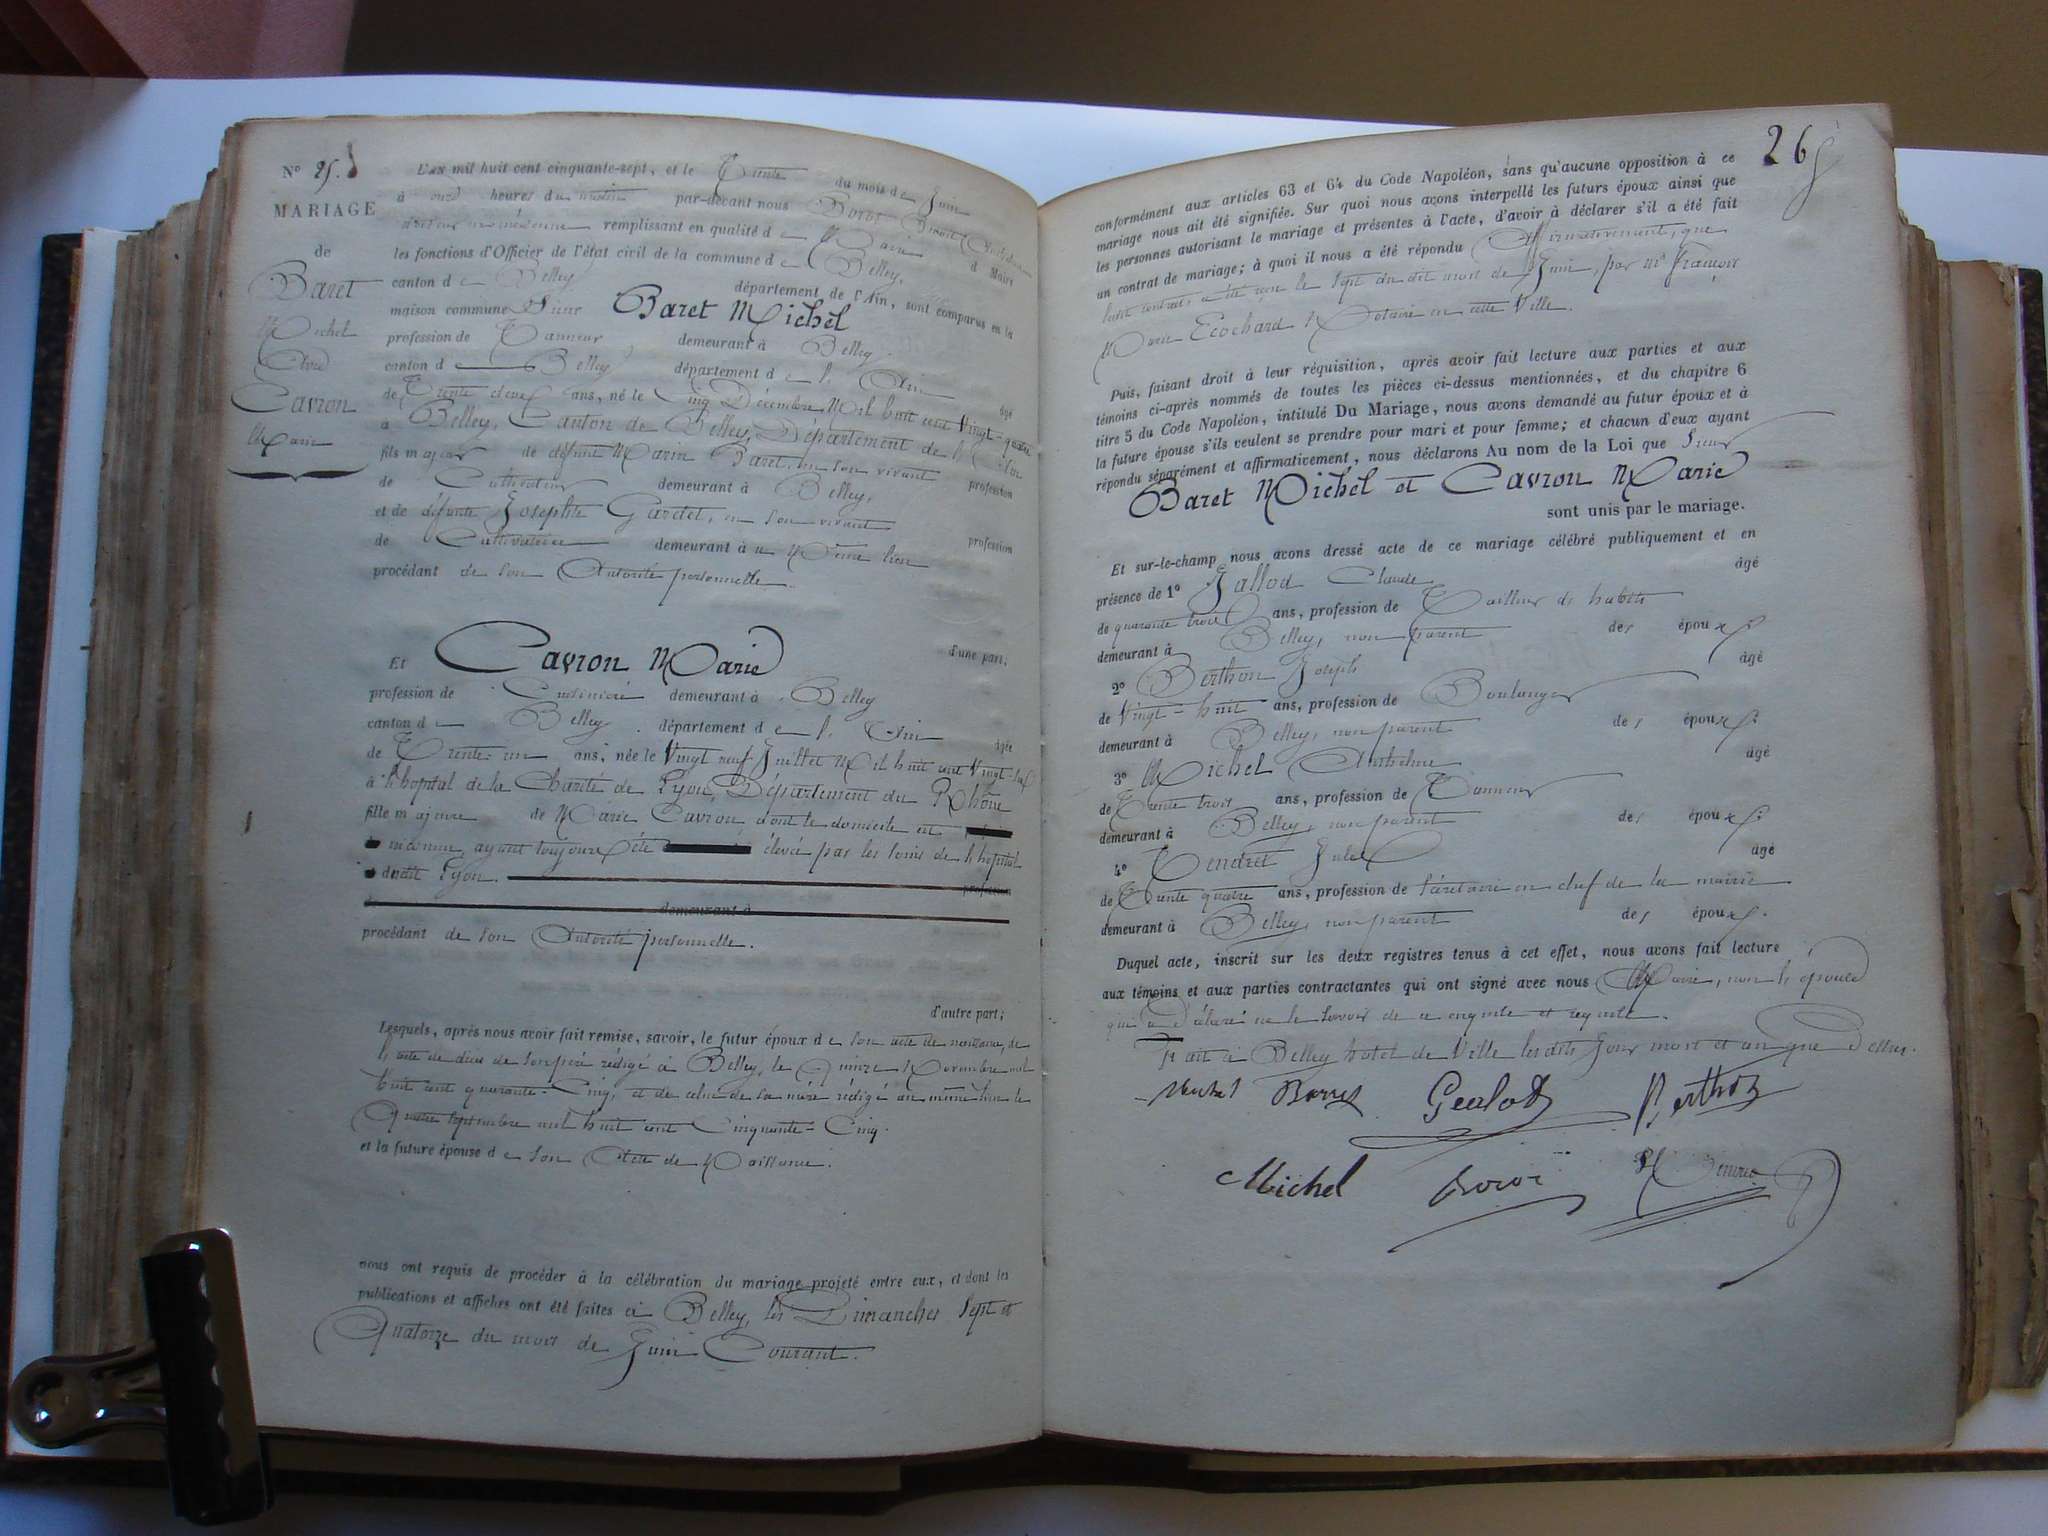 N° 25.
MARIAGE
de
Baret
Michel
Avec
Cavron
Marie
L'an mil huit cent cinquante-sept, et le Trente du mois de Juin
à onze heures du matin par-devant nous
remplissant en qualité de Maire d Maire
les fonctions d'Officier de l'état civil de la commune de Belley,
canton de Belley département de l'Ain, sont comparus en la
maison commune Sieur Baret Michel
profession de Tanneur demeurant à Belley.
canton de Belley département de l' Ain âgé
de Trente deux ans, né le Cinq Décembre Mil huit cent Vingt-quatre
à Belley, Canton de Belley, Département de l'Ain
fils majeur de défunt Marin Baret, en son vivant profession
de Cultivateur demeurant à Belley,
et de défunte Josephte Gardet, en son vivant profession
de Cultivatrice demeurant à au Même lieu
procédant de son Autorité personnelle.
d'une part;
Et Cavron Marie
profession de Cuisinière demeurant à Belley
canton de Belley département de l' Ain âgée
de Trente-un ans, née le Vingt neuf Juillet Mil huit cent Vingt-six
à l'hopital de la Charité de Lyon, Département du Rhône
fille majeure de Marie Cavron, dont le domicile est
inconnu, ayant toujours été élevée par les soins de l'hopital
dudit Lyon. profession
demeurant à
procédant de son Autorité personnelle.
d'autre part;
Lesquels, après nous avoir fait remise, savoir, le futur époux de son acte de naissance, de
l'acte de décès de son père rédigé à Belley, le Quinze Novembre mil
huit cent quarante-Cinq, et de celui de sa mère rédigé au même lieu le
Quatre Septembre mil huit cent Cinquante-Cinq.
et la future épouse de son Acte de Naissance.
nous ont requis de procéder à la célébration du mariage projeté entre eux, et dont les
publications et affiches ont été faites à Belley, les Dimanches Sept et
Quatorze du mois de Juin Courant.
26
conformément aux articles 63 et 64 du Code Napoléon, sans qu'aucune opposition à ce
mariage nous ait été signifiée. Sur quoi nous avons interpellé les futurs époux ainsi que
les personnes autorisant le mariage et présentes à l'acte, d'avoir à déclarer s'il a été fait
un contrat de mariage; à quoi il nous a été répondu Affirmativement, que
ledit contrat a été reçu le Sept du dit mois de Juin, par Me François
Marie Ecochard Notaire en cette Ville.
Puis, faisant droit à leur réquisition, après avoir fait lecture aux parties et aux
témoins ci-après nommés de toutes les pièces ci-dessus mentionnées, et du chapitre 6
titre 5 du Code Napoléon, intitulé Du Mariage, nous avons demandé au futur époux et à
la future épouse s'ils veulent se prendre pour mari et pour femme; et chacun d'eux ayant
répondu séparément et affirmativement, nous déclarons Au nom de la Loi que Sieur
Baret Michel et Cavron Marie
sont unis par le mariage.
Et sur-le-champ nous avons dressé acte de ce mariage célébré publiquement et en
présence de 1° Jallod Claude âgé
de quarante trois ans, profession de Tailleur de habits
demeurant à Belley, non parent des époux.
2° Berthon Joseph âgé
de Vingt-huit ans, profession de Boulanger
demeurant à Belley, non parent des époux.
3° Michel Anthelme âgé
de Trente trois ans, profession de Tanneur
demeurant à Belley, non parent des époux.
4° Tendret Jules âgé
de Trente quatre ans, profession de Sécretaire en chef de la mairie
demeurant à Belley, non parent des époux.
Duquel acte, inscrit sur les deux registres tenus à cet effet, nous avons fait lecture
aux témoins et aux parties contractantes qui ont signé avec nous Maire, non l'épouse
qui a Déclaré ne le Savoir de ce enquise et requise.
Fait à Belley hotel de Ville les dits Jour mois et an que Dessus.
Berthon
Michel